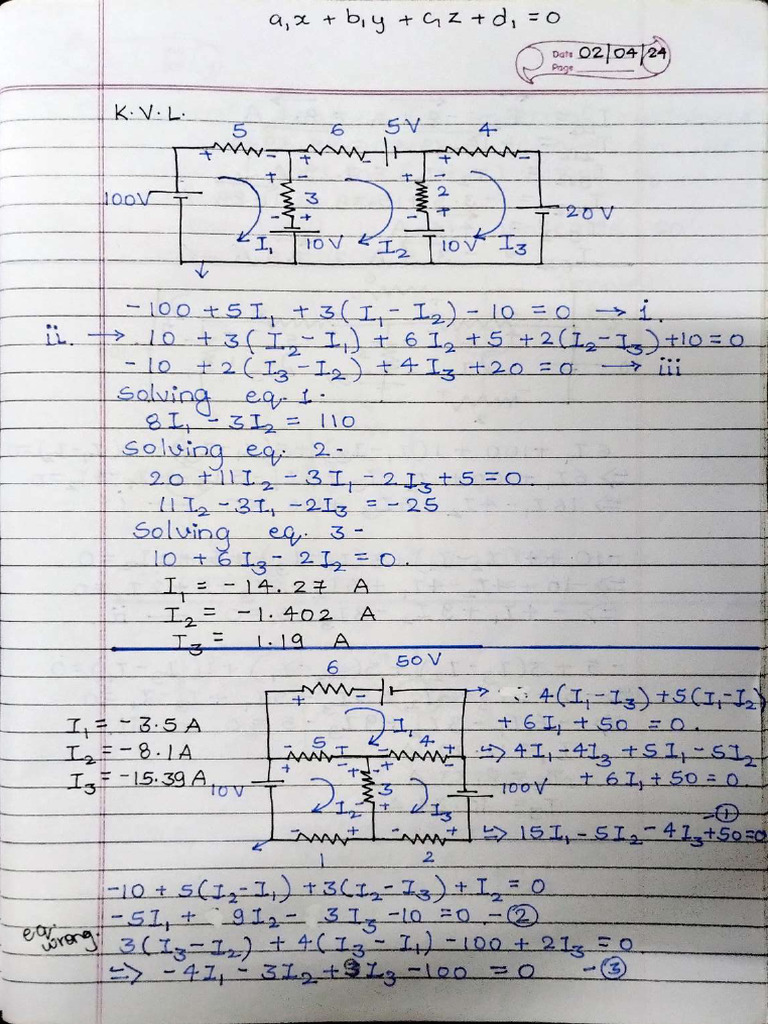 a₁x + b₁y + c₁z + d₁ = 0
Date 02/04/24
Page
K.V.L.
5 6 5V 4
100V 3 2 20V
I₁ 10V I₂ 10V I₃
-100 + 5I₁ + 3(I₁ - I₂) - 10 = 0 → i.
ii. → 10 + 3(I₂ - I₁) + 6I₂ + 5 + 2(I₂ - I₃) + 10 = 0
-10 + 2(I₃ - I₂) + 4I₃ + 20 = 0 → iii
Solving eq. 1.
8I₁ - 3I₂ = 110
Solving eq. 2-
20 + 11I₂ - 3I₁ - 2I₃ + 5 = 0.
11I₂ - 3I₁ - 2I₃ = -25
Solving eq. 3-
10 + 6I₃ - 2I₂ = 0.
I₁ = -14.27 A
I₂ = -1.402 A
I₃ = 1.19 A
6 50V
∴ 4(I₁ - I₃) + 5(I₁ - I₂)
+ 6I₁ + 50 = 0.
⇒ 4I₁ - 4I₃ + 5I₁ - 5I₂
+ 6I₁ + 50 = 0
①
⇒ 15I₁ - 5I₂ - 4I₃ + 50 = 0
I₁ = -3.5 A
I₂ = -8.1 A
I₃ = -15.39 A
I₁
5 4
10V 3 100V
I₂ I₃
1 2
-10 + 5(I₂ - I₁) + 3(I₂ - I₃) + I₂ = 0
-5I₁ + 9I₂ - 3I₃ - 10 = 0 - ②
eq. wrong. 3(I₃ - I₂) + 4(I₃ - I₁) - 100 + 2I₃ = 0
⇒ -4I₁ - 3I₂ + 9I₃ - 100 = 0 - ③